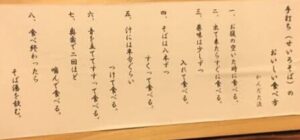 手打ち(せいろそば)の
おいしい食べ方
かんだた法
一、お腹の空いた時に食べる。
二、出て来たらすぐに食べる。
三、薬味は少しずつ
入れて食べる。
四、そばは八本ずつ
すくって食べる。
五、汁には半分ぐらい
つけて食べる。
六、音を立ててすすって食べる。
七、奥歯で二回ほど
噛んで食べる。
八、食べ終わったら
そば湯を飲む。